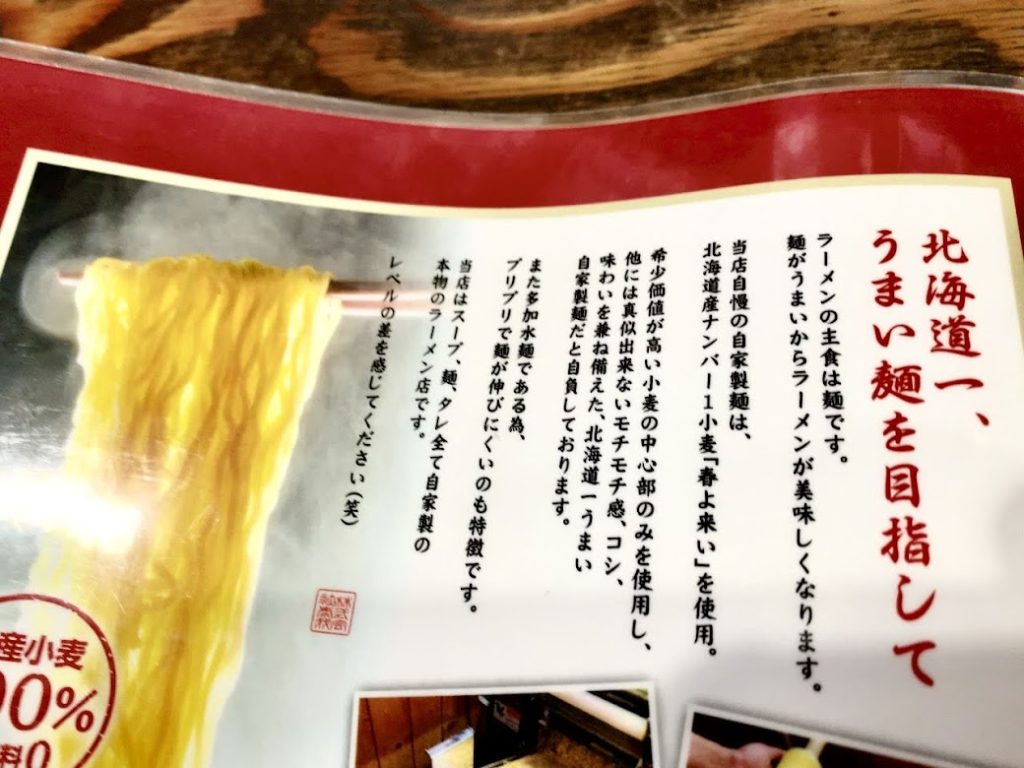 北海道一、
うまい麺を目指して
ラーメンの主食は麺です。
麺がうまいからラーメンが美味しくなります。
当店自慢の自家製麺は、
北海道産ナンバー1小麦「春よ来い」を使用。
希少価値が高い小麦の中心部のみを使用し、
他には真似出来ないモチモチ感、コシ、
味わいを兼ね備えた、北海道一うまい
自家製麺だと自負しております。
また多加水麺である為、
プリプリで麺が伸びにくいのも特徴です。
当店はスープ、麺、タレ全て自家製の
本物のラーメン店です。
レベルの差を感じてください(笑)
産小麦
00%
料0